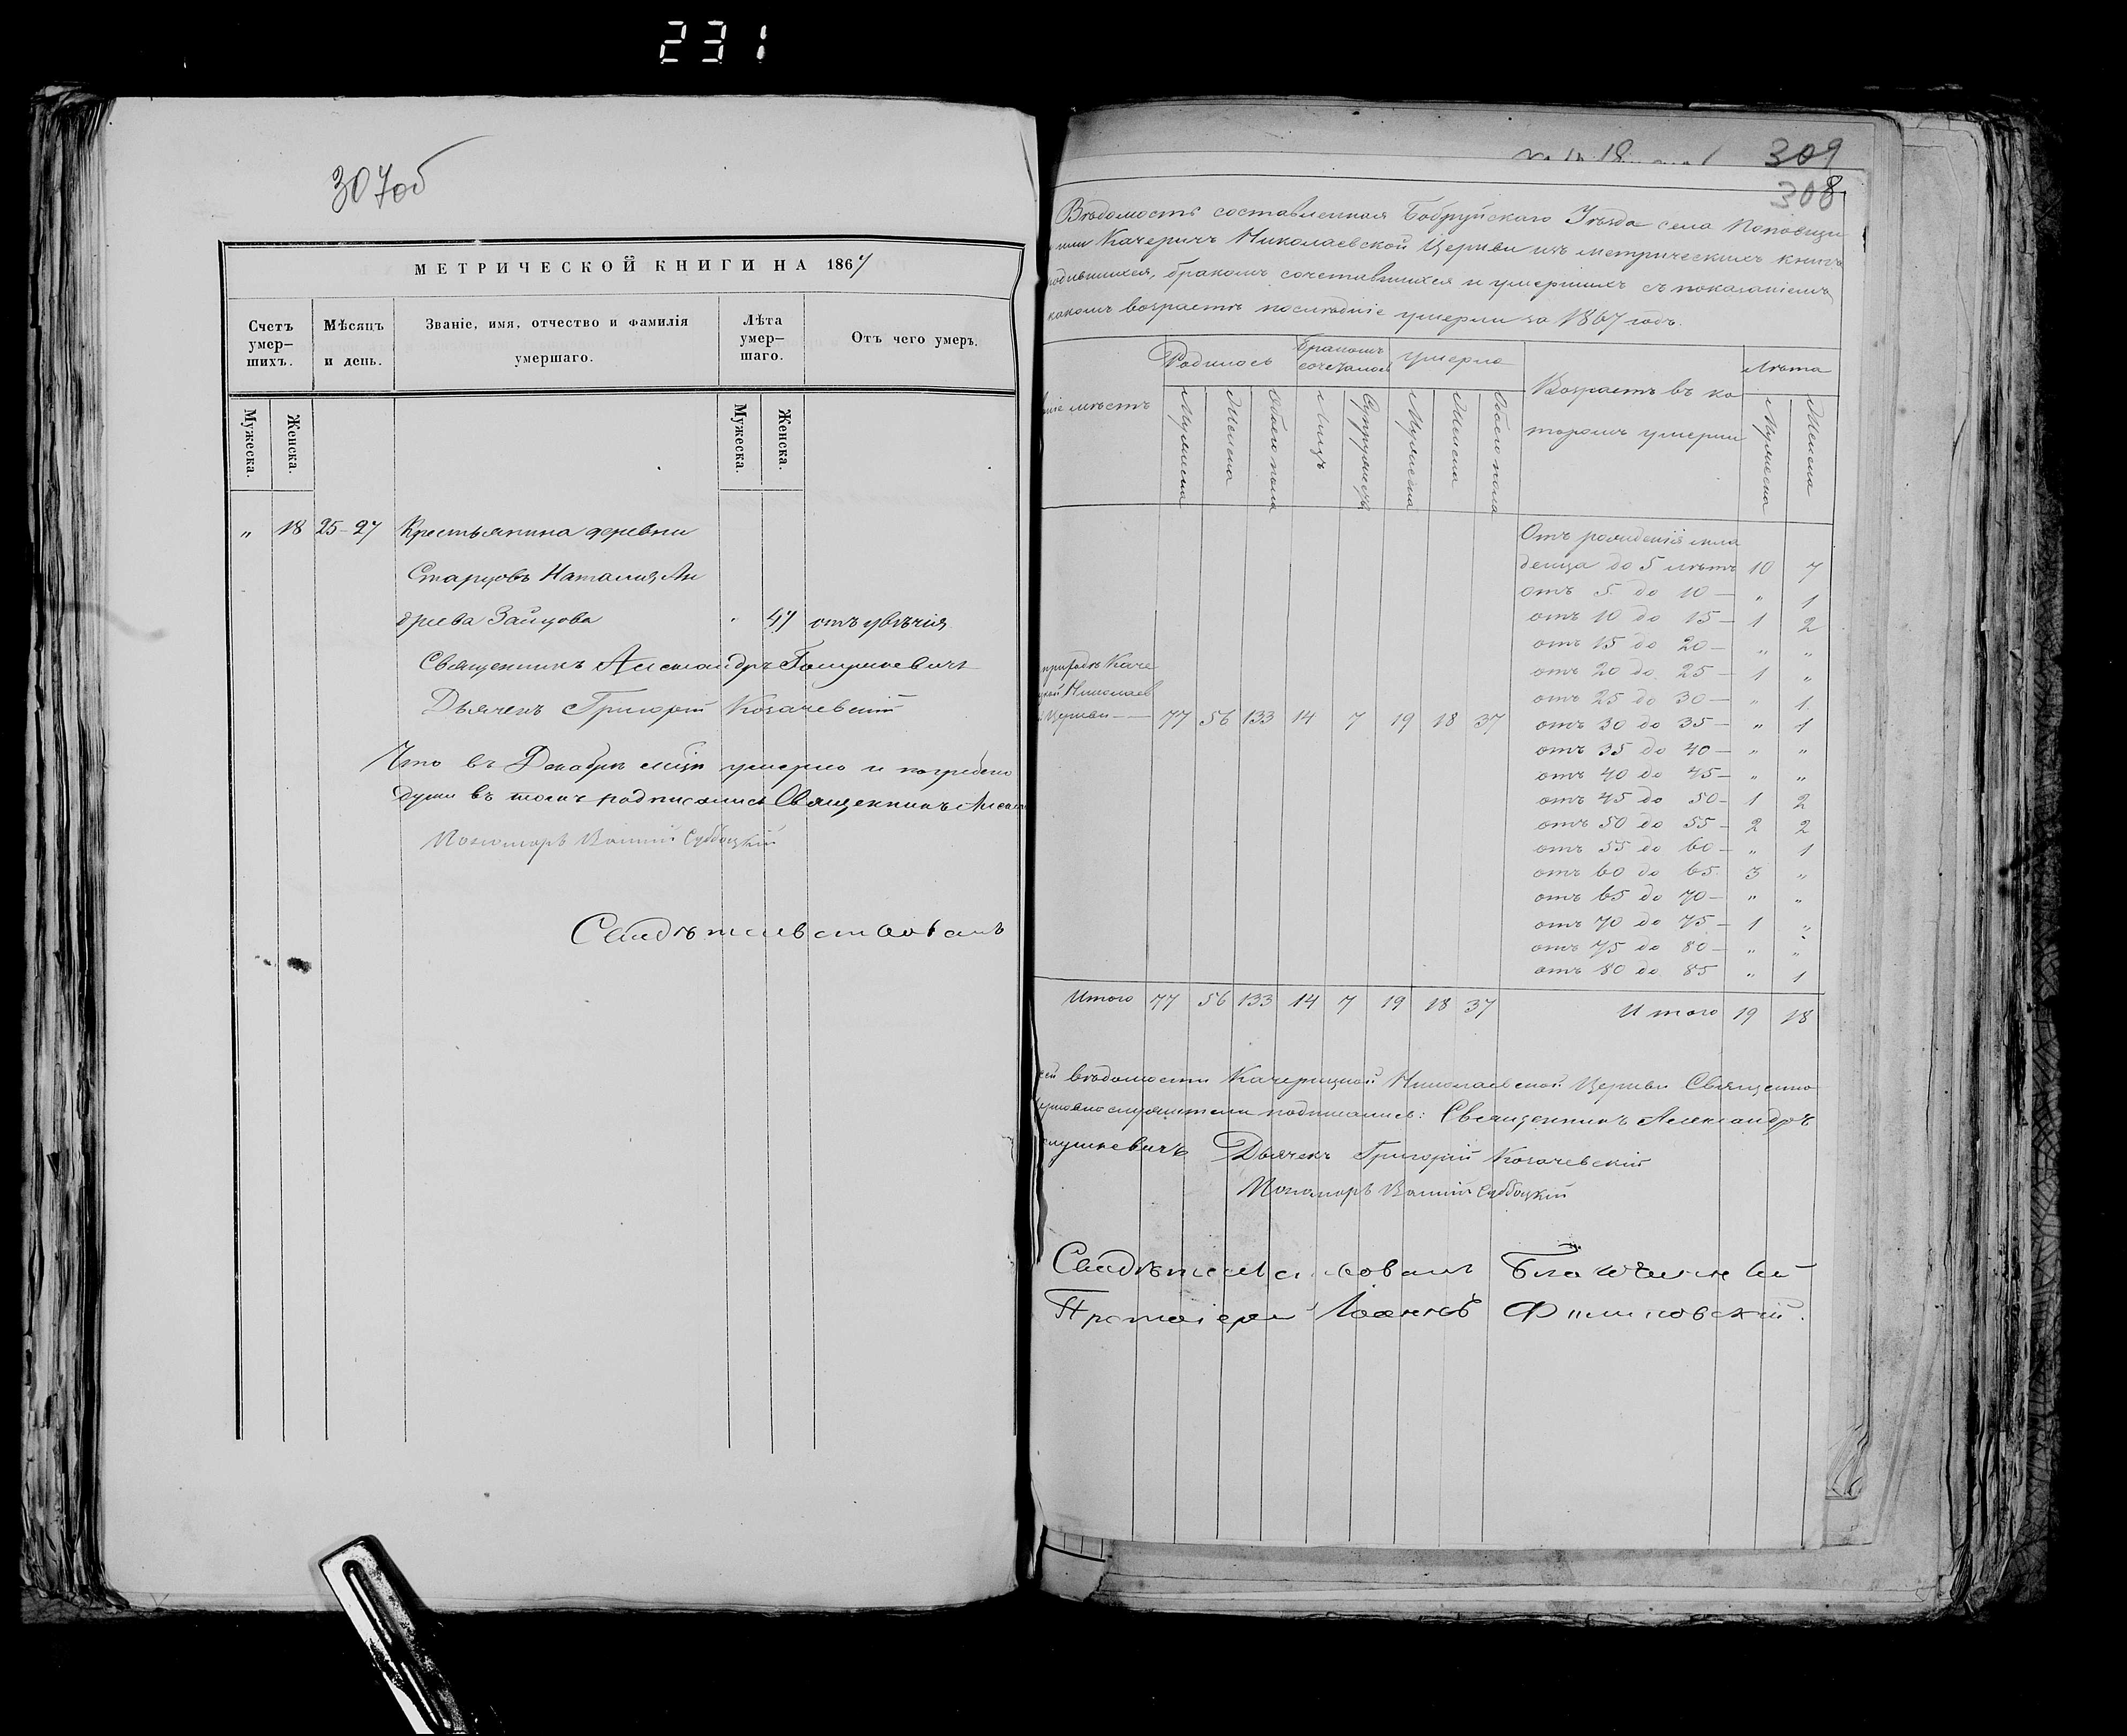 231
307об
МЕТРИЧЕСКОЙ КНИГИ НА 1867
Счетъ умер-шихъ.
Мѣсяцъ и день.
Званіе, имя, отчество и фамилія умершаго.
Лѣта умер-шаго.
Отъ чего умеръ.
Мужеска. Женска. Мужеска. Женска.
" 18 25-27 Крестьянина деревни
Старцовъ Наталия Ан
дреева Зайцова " 47 отъ увѣчия
Священникъ Александръ
Дьячекъ Григорій Козачевскій
Что въ Декабрѣ умерло и погребено
души въ томъ подписались Священникъ
Пономарь Субоцкій
Свидѣтельствовалъ
309
308
Вѣдомость составленная Бобруйскаго Уѣзда села Поповщи
или Качеричъ Николаевской Церкви изъ метрическихъ книгъ
родившихся, бракомъ сочетавшихся и умершихъ съ показаніемъ
какомъ возрастѣ послѣдніе умерли за 1867 годъ.
Родилось Бракомъ сочеталось умерло Возрастъ въ ко Лѣта
ніе мѣстъ торомъ умерли
Мужеска Женска Обоего пола Лицъ Супружествъ Мужеска Женска Обоего пола Мужеска Женска
Отъ рожденія мла
денца до 5 лѣтъ 10 7
отъ 5 до 10 — " 1
отъ 10 до 15 — 1 2
отъ 15 до 20 — " "
отъ 20 до 25 — 1 "
отъ 25 до 30 — " 1
отъ 30 до 35 — " 1
отъ 35 до 40 — " "
отъ 40 до 45 — " "
отъ 45 до 50 — 1 2
отъ 50 до 55 — 2 2
отъ 55 до 60 — " 1
отъ 60 до 65 3 "
отъ 65 до 70 — " "
отъ 70 до 75 — 1 "
отъ 75 до 80 — " "
отъ 80 до 85 " 1
приходѣ Каче
цкой Николаев
Церкви — 77 56 133 14 7 19 18 37
Итого 77 56 133 14 7 19 18 37 Итого 19 18
сей вѣдомости Качерицкой Николаевской Церкви Священно
церковнослужители подписались: Священникъ Александръ
Дьячекъ Григорій Козачевскій
Пономарь Субоцкій
Свидѣтельствовалъ Благочинный
Протоіерей Іоаннъ Филиповскій.